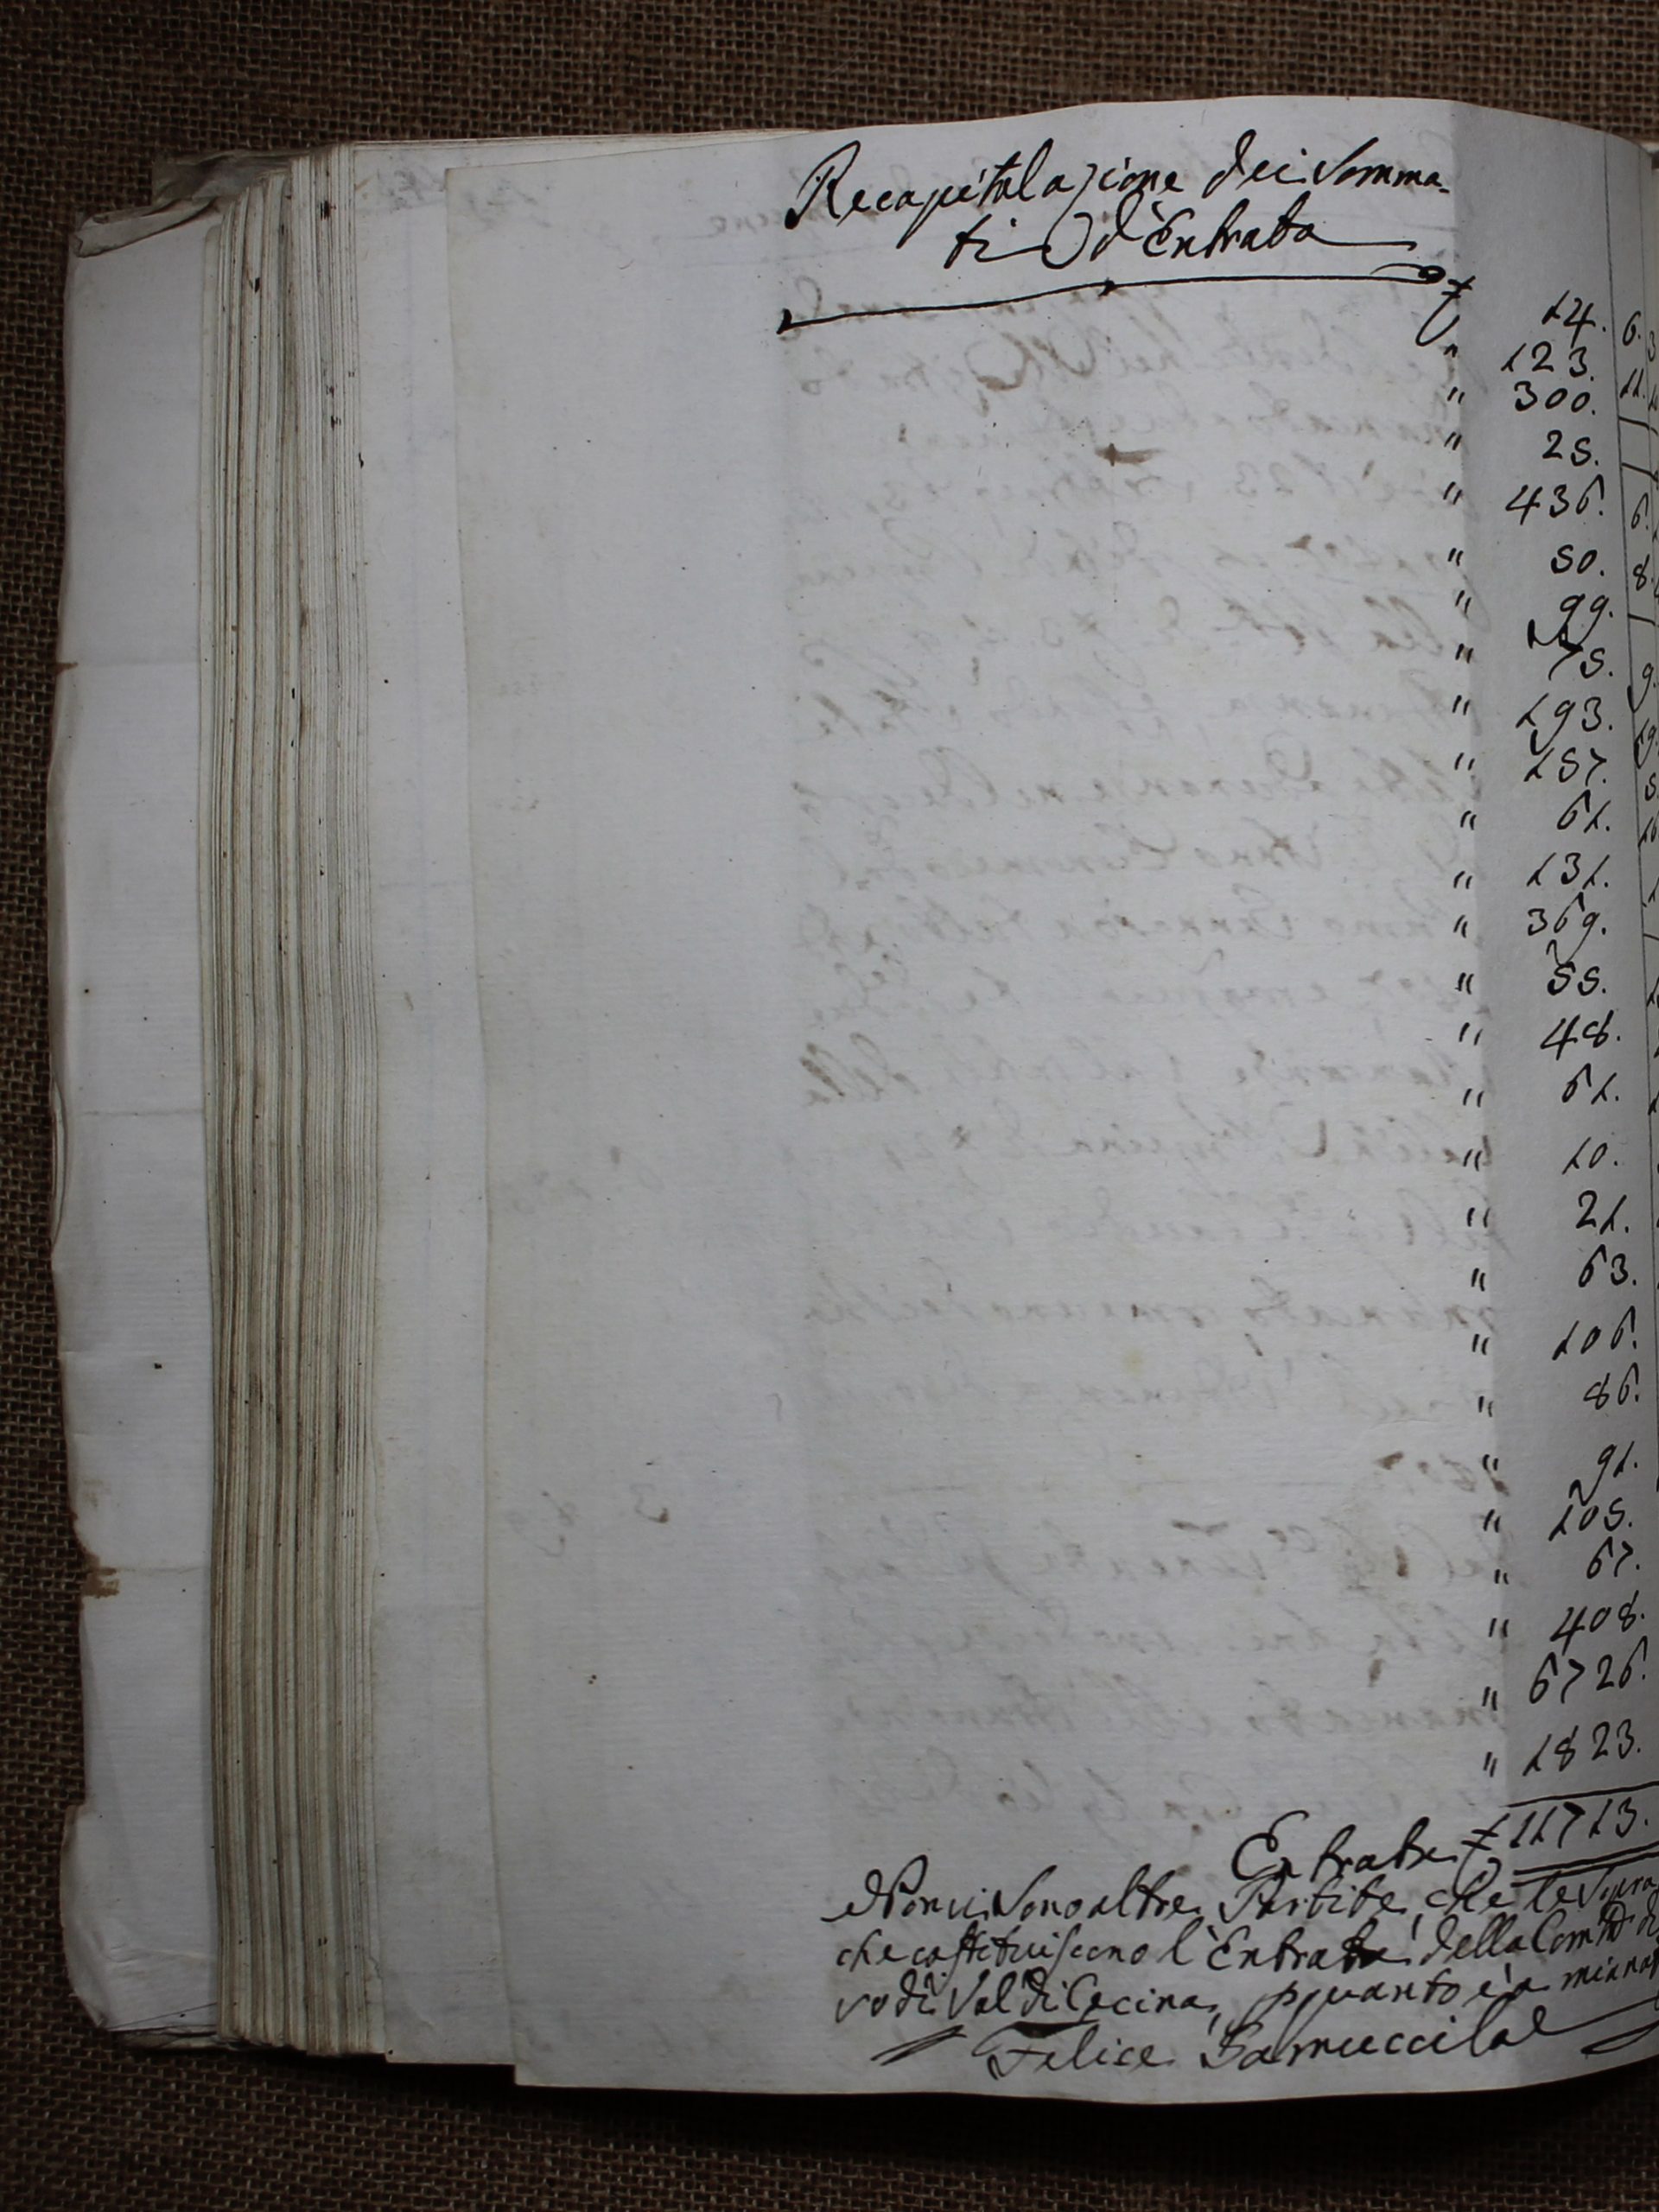 Recapitolazione dei Somma-
ti d'Entrata
14. 6.
" 123. 11.
" 300.
" 25.
" 436. 6.
" 50. 8.
" 99.
" 75. 9.
" 193. 19.
" 157. 5.
" 61.
" 131.
" 369.
" 55.
" 48.
" 61.
" 10.
" 21.
" 63.
" 106.
" 86.
" 91.
" 105.
" 67.
" 408.
" 6726.
" 1823.
Entrata 11713.
Non vi Sono altre Partite, che le Sopra
che costituiscono l'Entrata della Com.tà di
vo di Val di Cecina, quanto è a mia
Felice